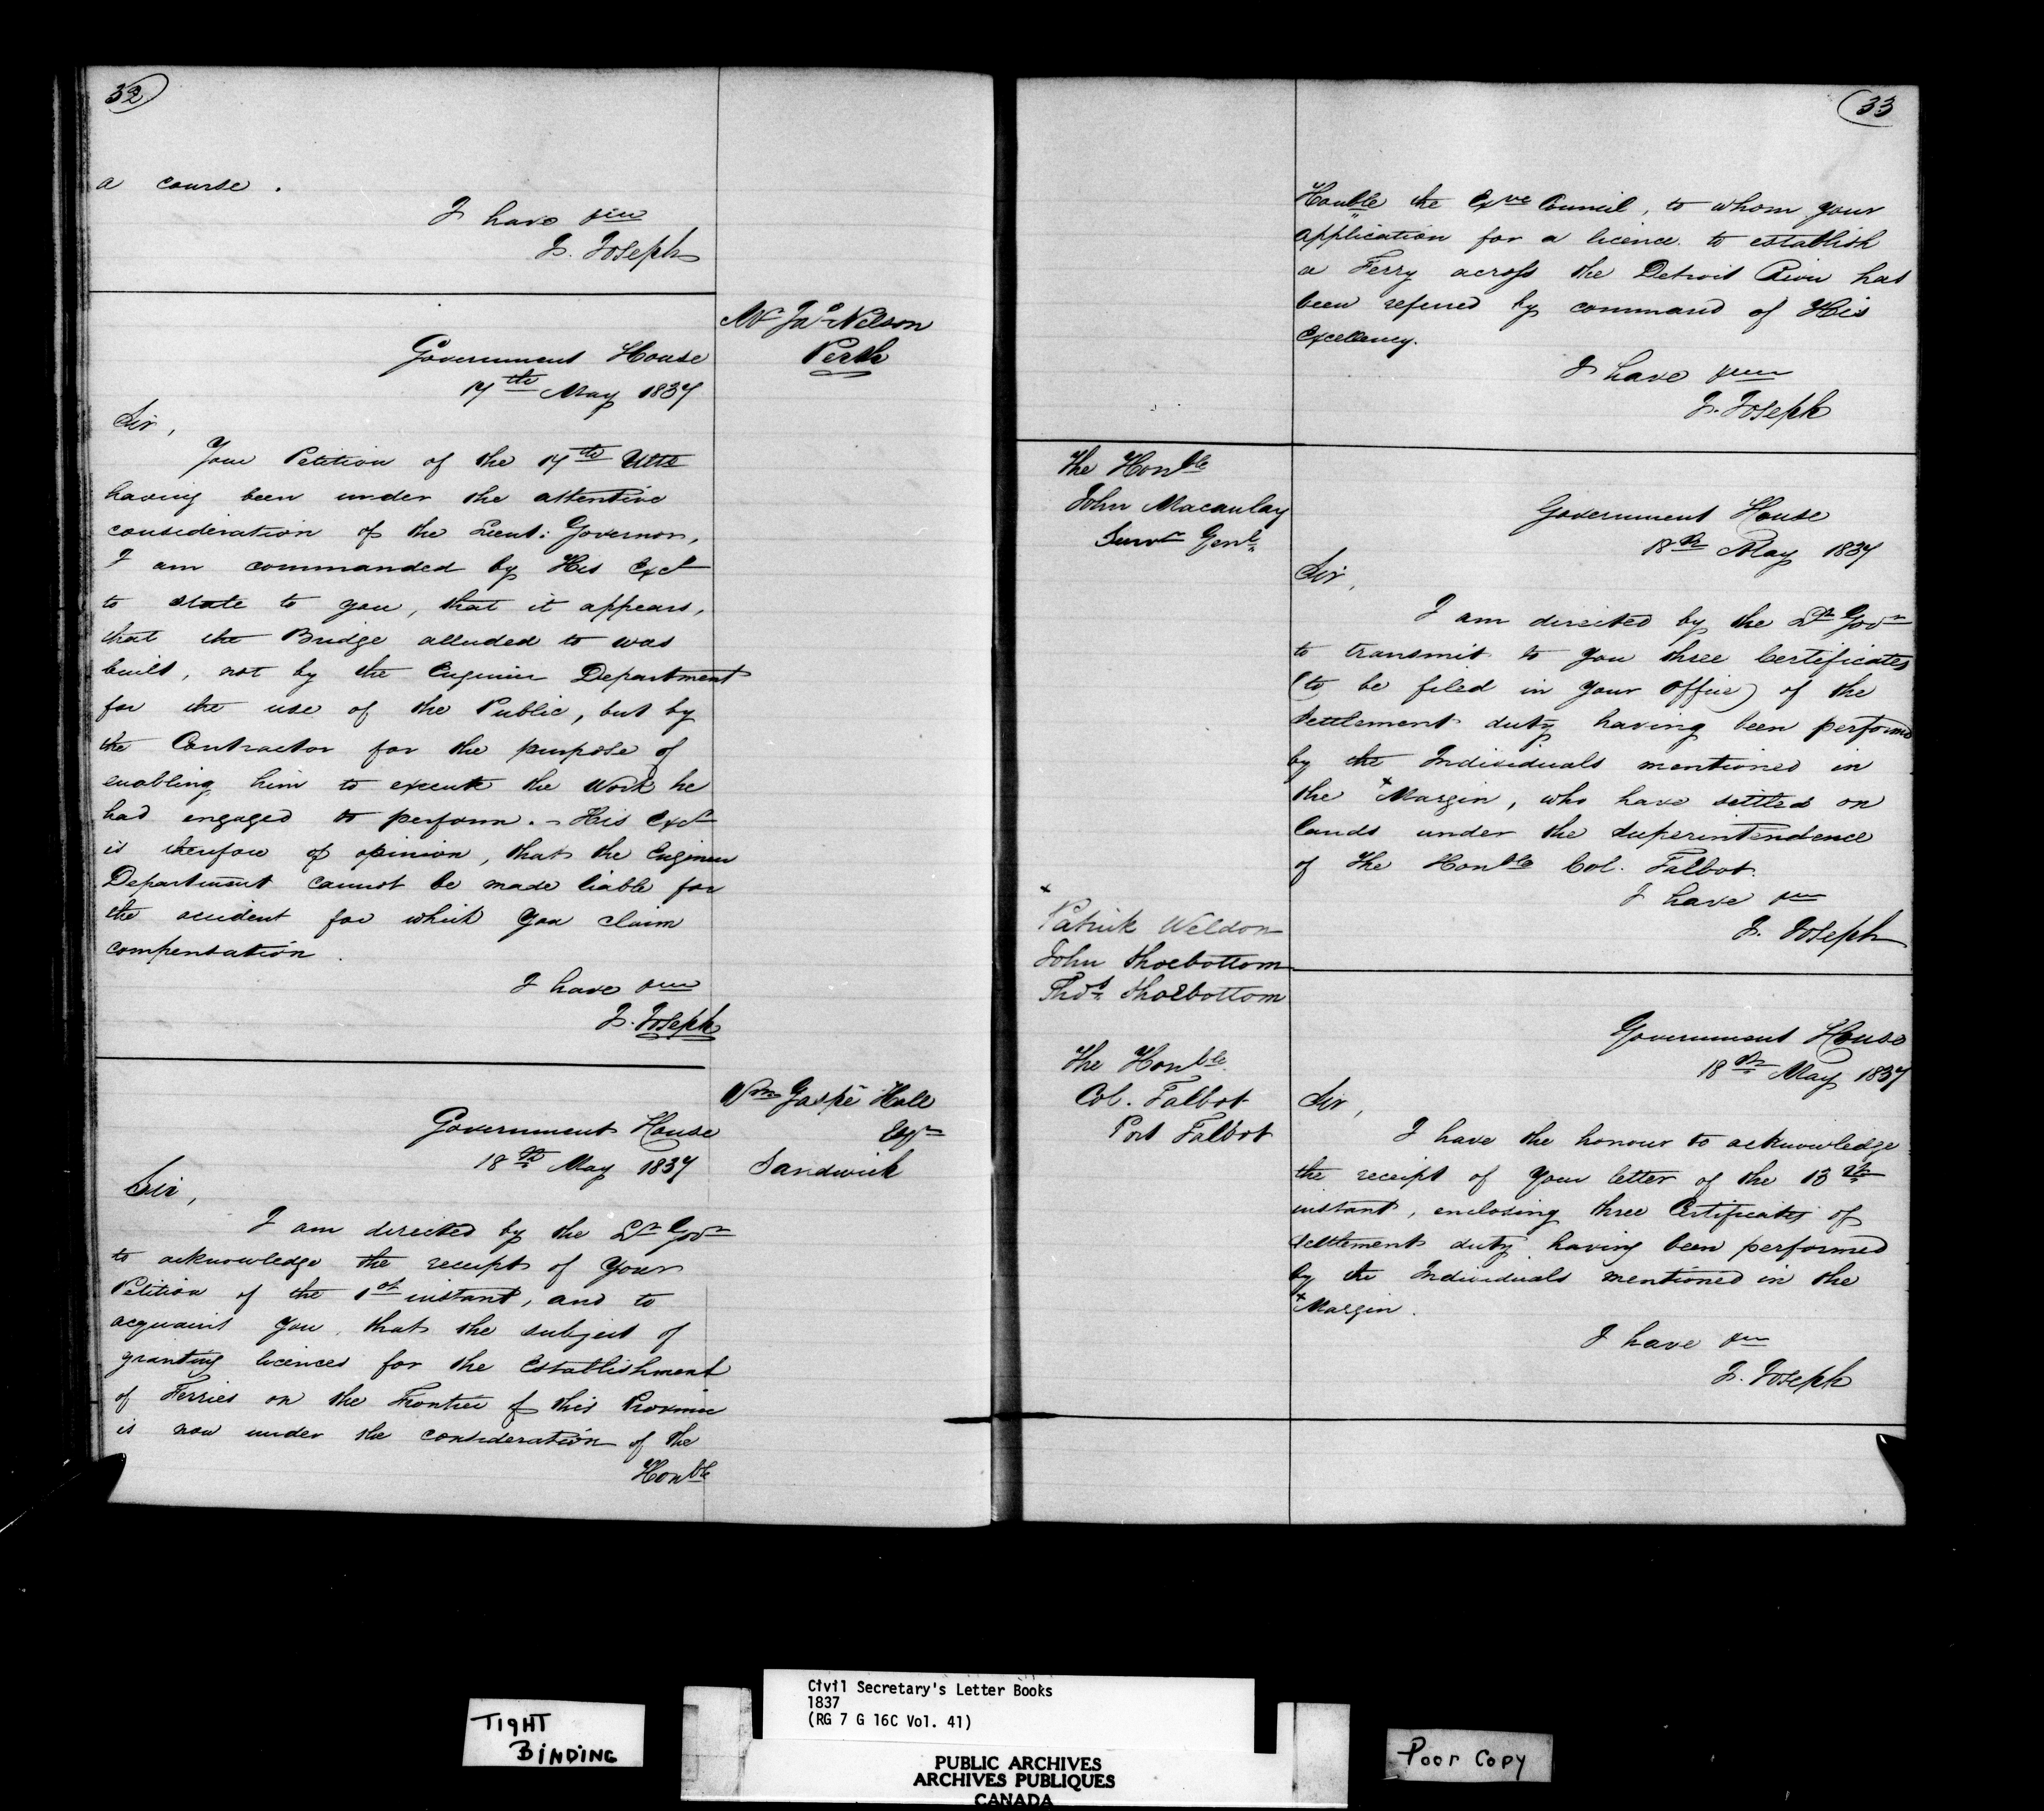 32
a course .
I have &c
J. Joseph
Mr Jas Nelson
Perth
Government House
17th May 1837
Sir,
Your Petition of the 17th Ulto
having been under the attentive
consideration of the Lieut: Governor,
I am commanded by His Excy
to state to you, that it appears,
that the Bridge alluded to was
built, not by the Engineer Department
for the use of the Public, but by
the Contractor for the purpose of
enabling him to execute the Work he
had engaged to perform. - His Excy
is therefore of opinion, that the Engineer
Department cannot be made liable for
the accident for which you claim
compensation .
I have &c
J. Joseph
Wm Gaspé Hall
Esqr
Sandwich
Government House
18th May 1837
Sir,
I am directed by the Lt Govr
to acknowledge the receipt of your
Petition of the 1st instant, and to
acquaint you, that the subject of
granting licences for the Establishment
of Ferries on the Frontier of this Province
is now under the consideration of the
Honble
33
Honble the Exve Council, to whom your
application for a licence to establish
a Ferry across the Detroit River has
been referred by command of His
Excellency.
I have &c
J. Joseph
The Honble
John Macaulay
Survr Genl
Government House
18th May 1837
Sir,
I am directed by the Lt Govr
to transmit to you three Certificates
(to be filed in your Office) of the
settlement duty having been performed
by the Individuals mentioned in
the x Margin, who have settled on
lands under the superintendence
of the Honble Col. Talbot.
I have &c
J. Joseph
x
Patrick Weldon
John Shoebottom
Thos Shoebottom
The Honble
Col. Talbot
Port Talbot
Government House
18th May 1837
Sir,
I have the honour to acknowledge
the receipt of your letter of the 13th
instant, enclosing three Certificates of
settlement duty having been performed
by the Individuals mentioned in the
x Margin.
I have &c
J. Joseph
TIGHT
BINDING
Civil Secretary's Letter Books
1837
(RG 7 G 16C Vol. 41)
PUBLIC ARCHIVES
ARCHIVES PUBLIQUES
CANADA
Poor Copy